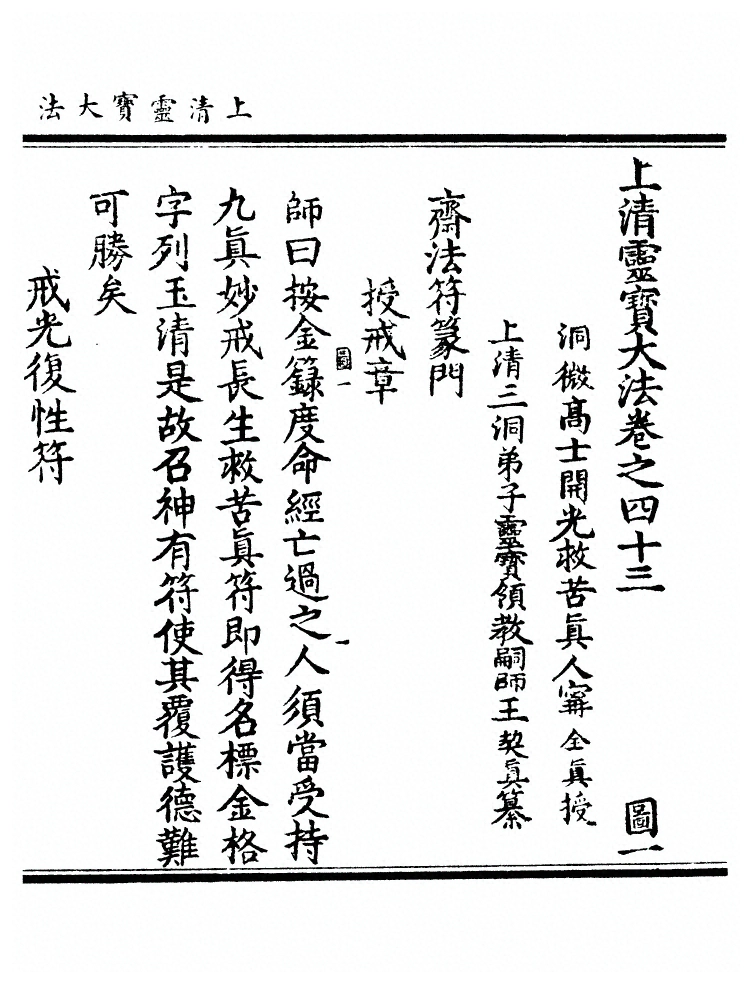 上清靈寶大法
上清靈寶大法卷之四十三 圖一
洞微高士開光救苦眞人寗全眞授
上清三洞弟子靈寶領教嗣師王契眞纂
齋法符篆門
授戒章
圖一
師曰按金籙度命經亡過之人須當受持
九眞妙戒長生救苦眞符即得名標金格
字列玉清是故召神有符使其覆護德難
可勝矣
戒光復性符